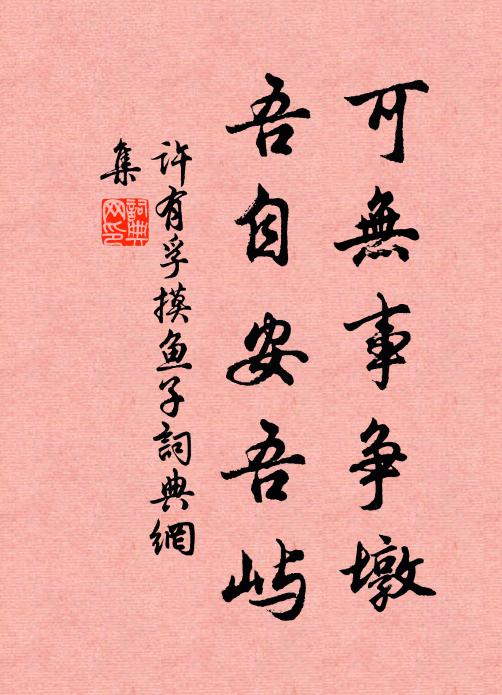 可無事争墩
吾自安吾屿
许有孚摸鱼子詞典網
集
詞典
网印